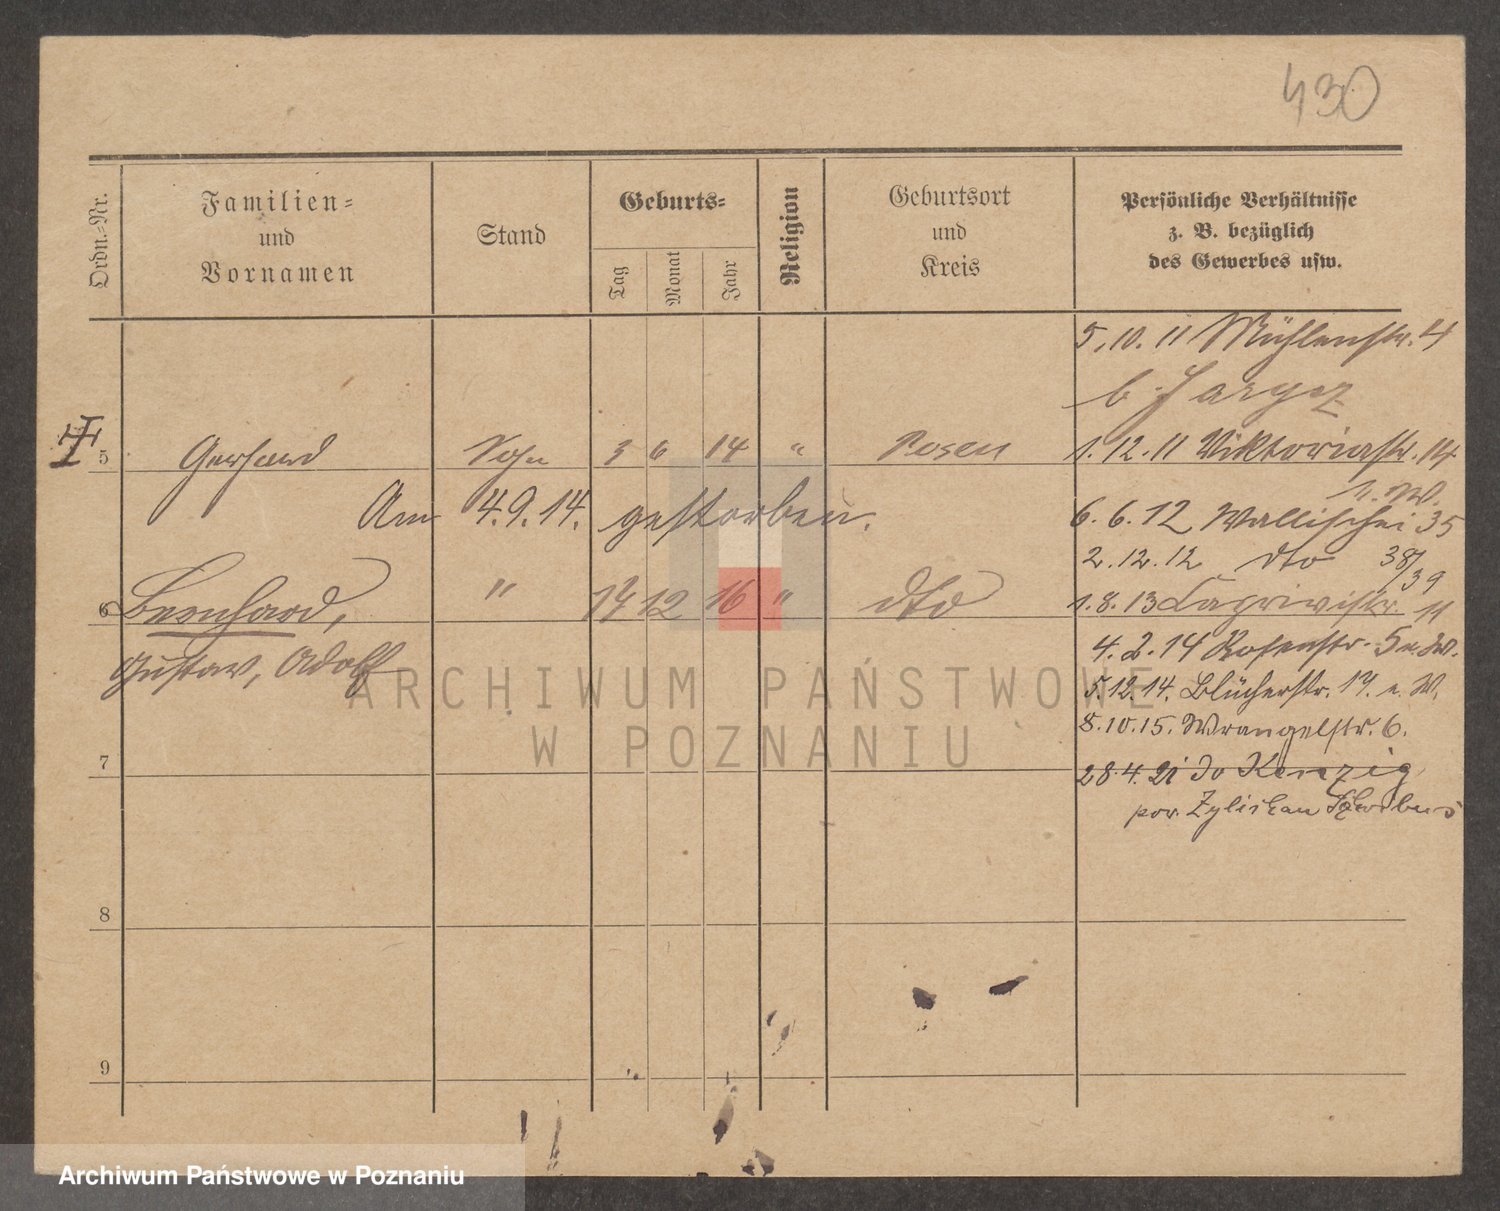 430
Ordn.-Nr.
Familien-
und
Vornamen
Stand
Geburts-
Tag
Monat
Jahr
Religion
Geburtsort
und
Kreis
Persönliche Verhältnisse
z. B. bezüglich
des Gewerbes usw.
5.10.11 Mühlenstr. 4
b.
5 Gerhard Sohn 3 6 14 " Posen
1.12.11 Viktoriastr. 14
Am 4.9.14. gestorben.
6.6.12 Wallischei 35
2.12.12 dto 38/39
6 Bernhard, " 17 12 16 " dto
1.8.13 11
Gustav, Adolf
4.2.14 Rosenstr. 5 n. W.
5.12.14. Blücherstr. 17. n. W.
8.10.15. Wrangelstr. 6.
7
28.4.21 do
pow.
8
9
ARCHIWUM PAŃSTWOWE
W POZNANIU
Archiwum Państwowe w Poznaniu